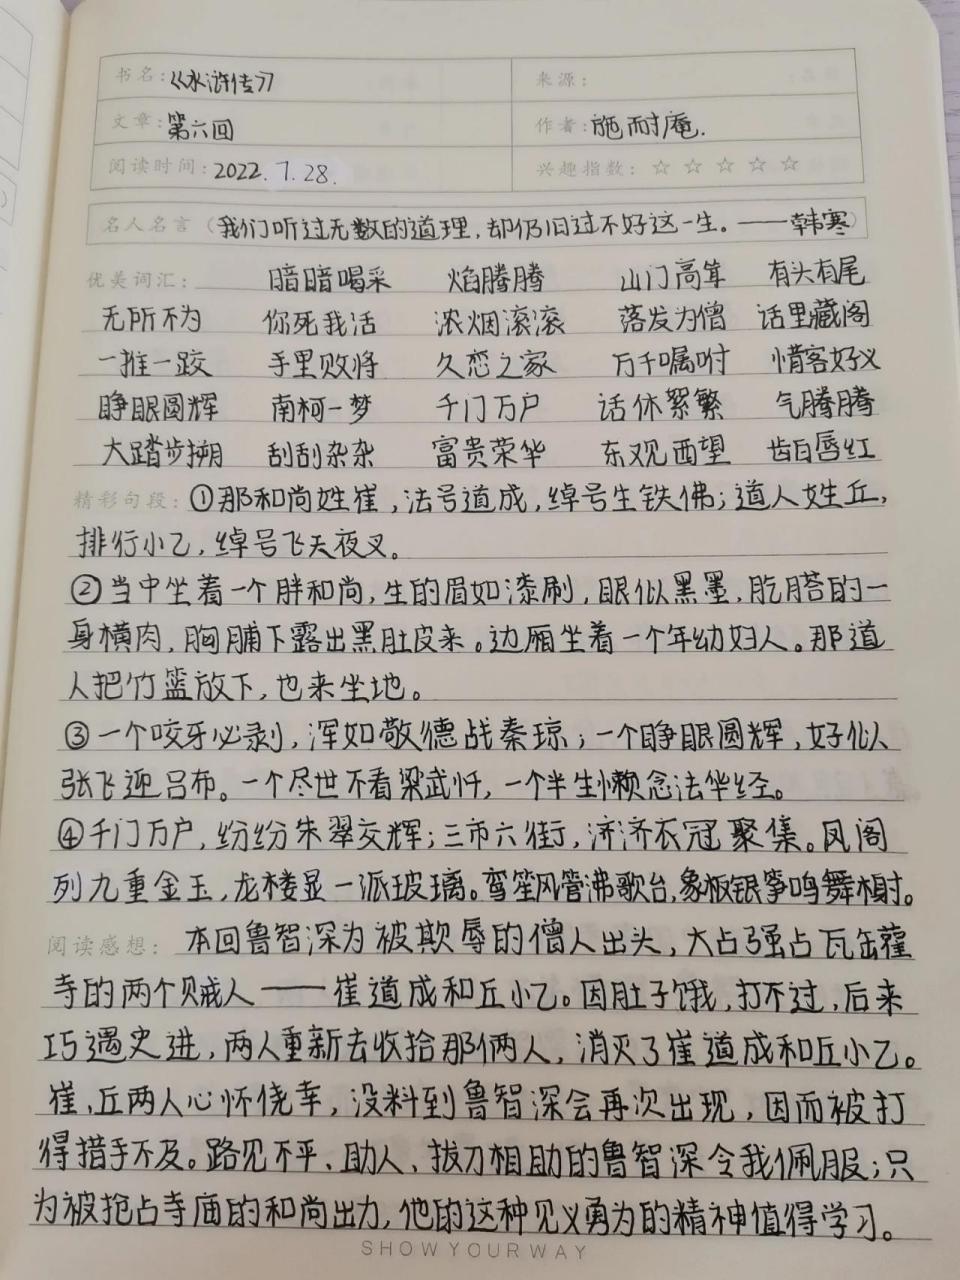 书名：《水浒传》 来源：
文章：第六回 作者：施耐庵.
阅读时间：2022.7.28. 兴趣指数：☆ ☆ ☆ ☆ ☆
名人名言（我们听过无数的道理，却仍旧过不好这一生。——韩寒）
优美词汇： 暗暗喝采 焰腾腾 山门高耸 有头有尾
无所不为 你死我活 浓烟滚滚 落发为僧 话里藏阄
一推一跤 手里败将 久恋之家 万千嘱咐 惜客好义
睁眼圆辉 南柯一梦 千门万户 话休絮繁 气腾腾
大踏步搠 刮刮杂杂 富贵荣华 东观西望 齿白唇红
精彩句段：①那和尚姓崔，法号道成，绰号生铁佛；道人姓丘，
排行小乙，绰号飞天夜叉。
②当中坐着一个胖和尚，生的眉如漆刷，眼似黑墨，肐膪的一
身横肉，胸脯下露出黑肚皮来。边厢坐着一个年幼妇人。那道
人把竹篮放下，也来坐地。
③一个咬牙必剥，浑如敬德战秦琼；一个睁眼圆辉，好似
张飞迎吕布。一个尽世不看梁武忏，一个半生懒念法华经。
④千门万户，纷纷朱翠交辉；三市六街，济济衣冠聚集。凤阁
列九重金玉，龙楼显一派玻璃。鸾笙凤管沸歌台，象板银筝鸣舞榭。
阅读感想： 本回鲁智深为被欺辱的僧人出头，大占强占瓦缶藿
寺的两个贼人——崔道成和丘小乙。因肚子饿，打不过，后来
巧遇史进，两人重新去收拾那俩人，消灭了崔道成和丘小乙。
崔、丘两人心怀侥幸，没料到鲁智深会再次出现，因而被打
得措手不及。路见不平、助人、拔刀相助的鲁智深令我佩服；只
为被抢占寺庙的和尚出力，他的这种见义勇为的精神值得学习。
SHOWYOURWAY